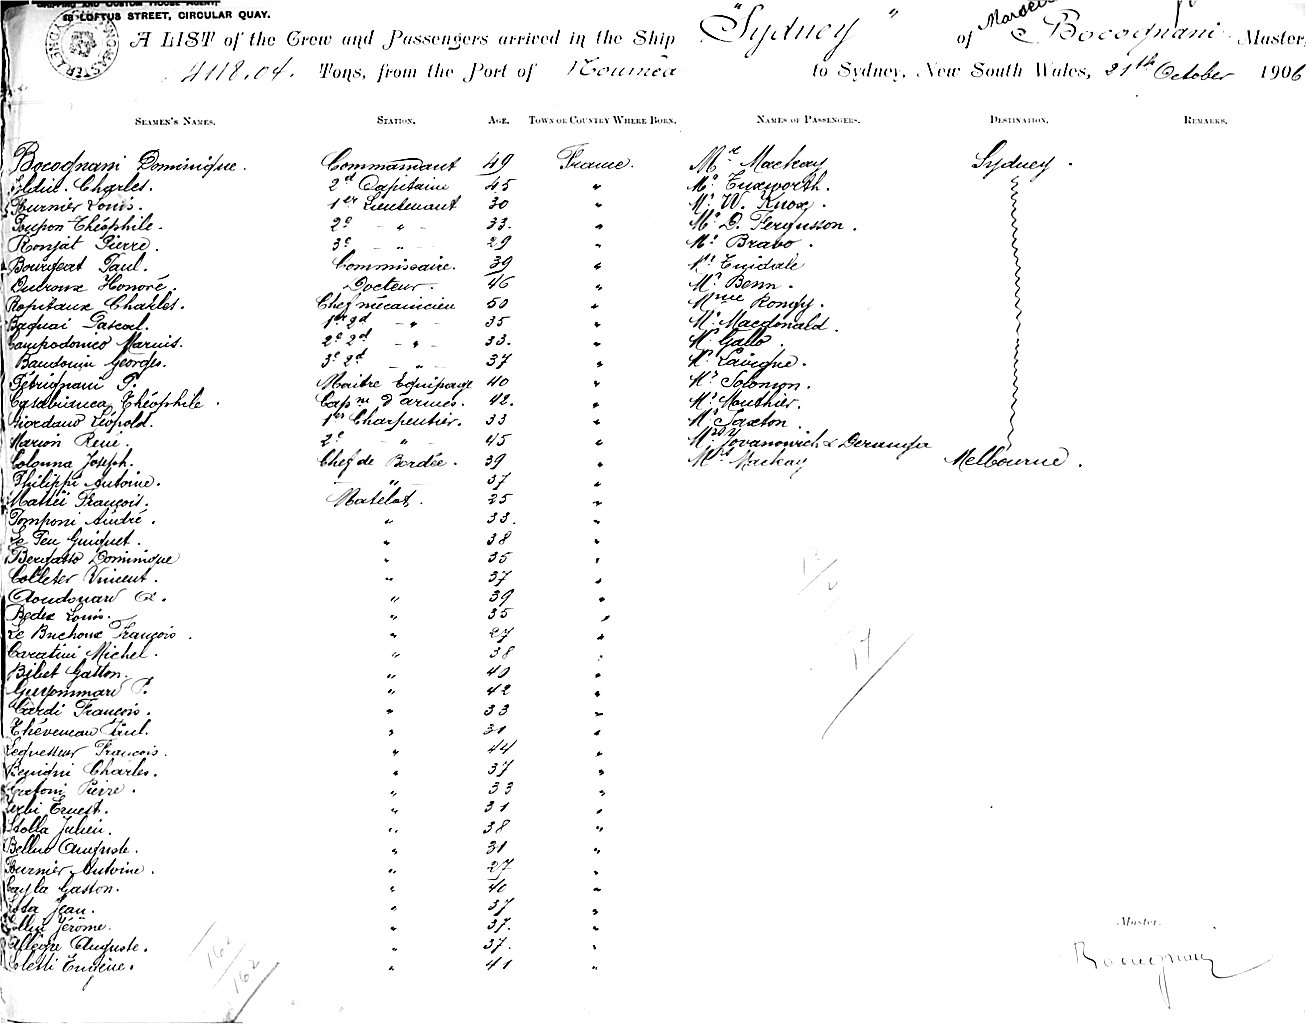 SHIPPING AND CUSTOM HOUSE AGENT,
LOFTUS STREET, CIRCULAR QUAY.
A LIST of the Crew and Passengers arrived in the Ship "Sydney" of Marseille Bocognani Master,
4118.04. Tons, from the Port of Nouméa to Sydney, New South Wales, 21th October 1906
SEAMEN'S NAMES. STATION. AGE. TOWN OR COUNTRY WHERE BORN. NAMES OF PASSENGERS. DESTINATION. REMARKS.
Bocognani Dominique. Commandant 49 France. Mr Mackay Sydney.
Charles. 2d Capitaine 45 " Mr Tuxworth.
Fournier Louis. 1er Lieutenant 30 " Mr W. Knox.
Poupon Théophile. 2e - " - 33. " Mr D. Fergusson.
Ronjat Pierre. 3e - " - 29 " Mr Bravo.
Paul. Commissaire. 39 " Mr
Honoré. Docteur. 46 " Mr Benn.
Ropitaux Charles. Chef mécanicien 50 " Mme
Pascal. 1er 2d - " - 35 " Mr Macdonald.
Campodonico Marius. 2e 2d - " - 33. " Mr Gallo.
Baudouin Georges. 3e 2d - " - 37 " Mr Lavigne.
Pétrignani P. Maitre Equipage 40 " Mr Solomon.
Casabianca Théophile. Capne d'armes. 42. " Mr Mouthier.
Giordano Léopold. 1er Charpentier. 33 " Mr Saxton.
Marion René. 2e - " - 45 " Mrs Jovanowich &
Colonna Joseph. Chef de Bordée. 39 " Mrs Mackay Melbourne.
Philippi Antoine. " 37 "
Mattei François. Matelot. 25 "
Tomponi André. " 33. "
Le Feu " 38 "
Dominique " 35 "
Colleter Vincent. " 37 "
" 39 "
Bedex Louis. " 35 "
Le Buchoux François. " 27 "
Caratini Michel. " 38 "
Gaston. " 40 "
Guyommard P. " 42 "
Cardi François. " 33 "
Théveneau Paul. " 31 "
Lequesteur François. " 44 "
Benigni Charles. " 37 "
Pierre. " 33 "
Ernest. " 31 "
Stolla Julien. " 38 "
Auguste. " 31 "
Antoine. " 27 "
Cayla Gaston. " 40 "
Jean. " 37 "
Jérôme. " 37. "
Allègre Auguste. " 37. "
Eugène. " 41 "
17
162
162
Master.
Bocognani